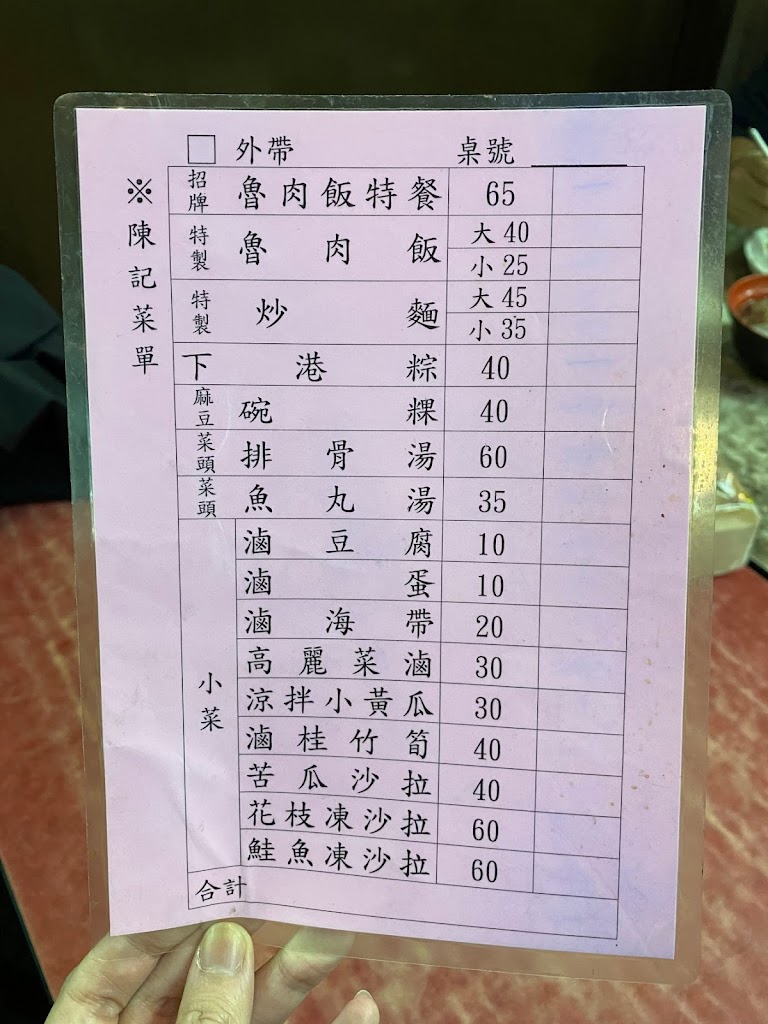 □ 外帶 桌號
※陳記菜單
招牌 魯肉飯特餐 65
特製 魯肉飯 大40
小25
特製 炒麵 大45
小35
下港粽 40
麻豆 碗粿 40
菜頭 排骨湯 60
菜頭 魚丸湯 35
小菜
滷豆腐 10
滷蛋 10
滷海帶 20
高麗菜滷 30
涼拌小黃瓜 30
滷桂竹筍 40
苦瓜沙拉 40
花枝凍沙拉 60
鮭魚凍沙拉 60
合計